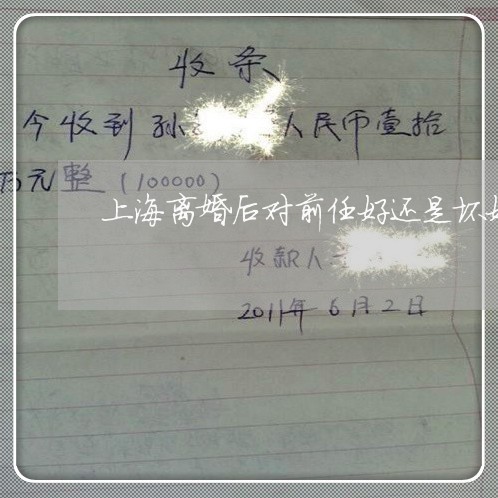 收条
今收到孙 人民币壹拾
万元整(100000)
上海离婚后对前任好还是坏
收款人
2011年6月2日